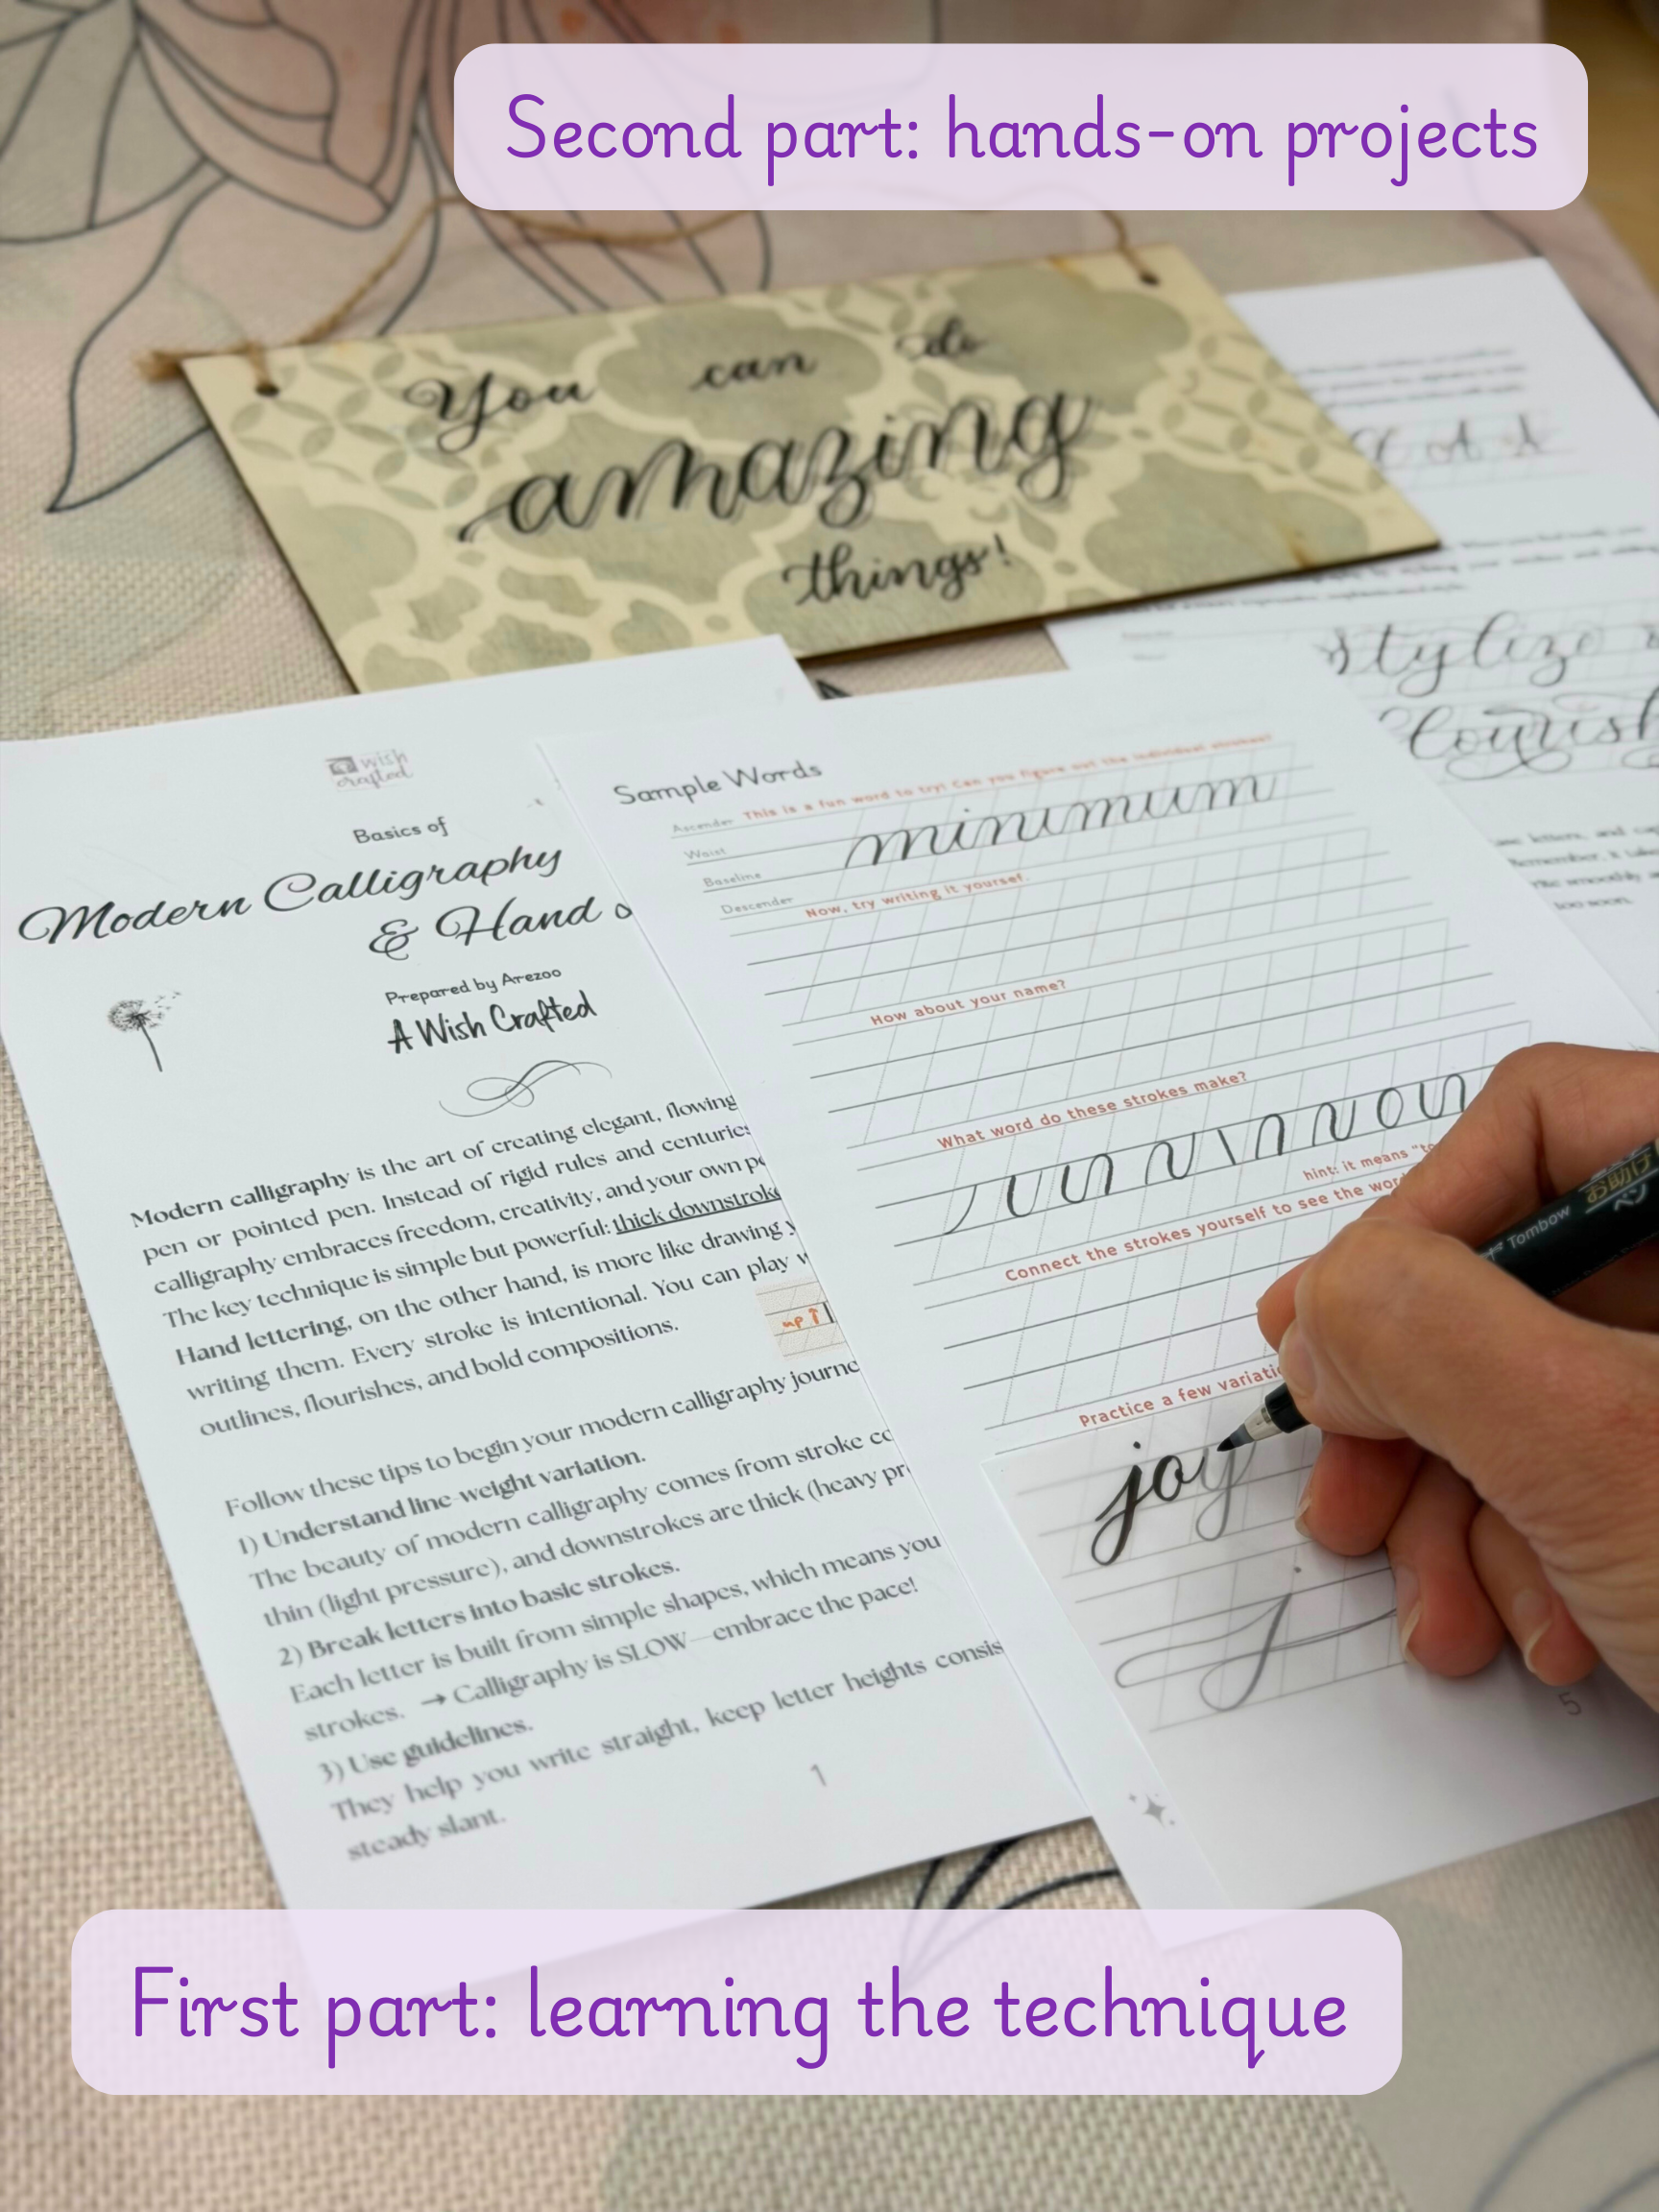 Second part: hands-on projects
You can do
amazing
things!
stylize
flourish
wish
crafted
Basics of
Modern Calligraphy
& Hand
Prepared by Arezoo
A Wish Crafted
Modern calligraphy is the art of creating elegant, flowing
pen or pointed pen. Instead of rigid rules and centuries
calligraphy embraces freedom, creativity, and your own
The key technique is simple but powerful: thick downstroke
Hand lettering, on the other hand, is more like drawing
writing them. Every stroke is intentional. You can play
outlines, flourishes, and bold compositions.
up ↑
Follow these tips to begin your modern calligraphy journe
1) Understand line-weight variation.
The beauty of modern calligraphy comes from stroke
thin (light pressure), and downstrokes are thick (heavy
2) Break letters into basic strokes.
Each letter is built from simple shapes, which means you
strokes. → Calligraphy is SLOW—embrace the pace!
3) Use guidelines.
They help you write straight, keep letter heights consis
steady slant.
1
Sample Words
Ascender This is a fun word to try! Can you figure out the individual strokes?
Waist
Baseline
Descender
minimum
Now, try writing it yoursef.
How about your name?
What word do these strokes make?
hint: it means "to
Connect the strokes yourself to see the word
Practice a few variatio
joy
j
5
Tombow
お助け
ペン
letters, and
Remember, it
smoothly
too soon.
First part: learning the technique